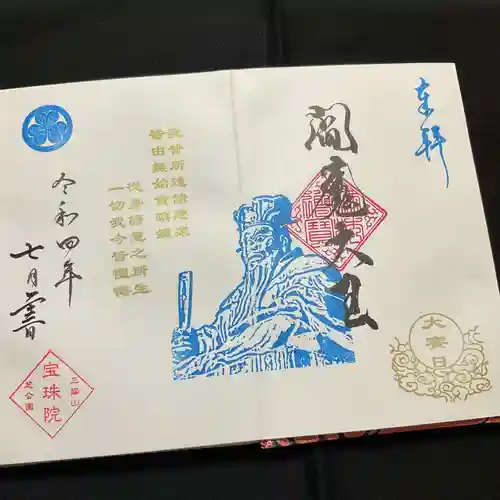 奉拝
閻魔大王
大斎日
我昔所造諸悪業
皆由無始貪瞋癡
従身語意之所生
一切我今皆懺悔
令和四年
七月
三縁山
宝珠院
芝公園